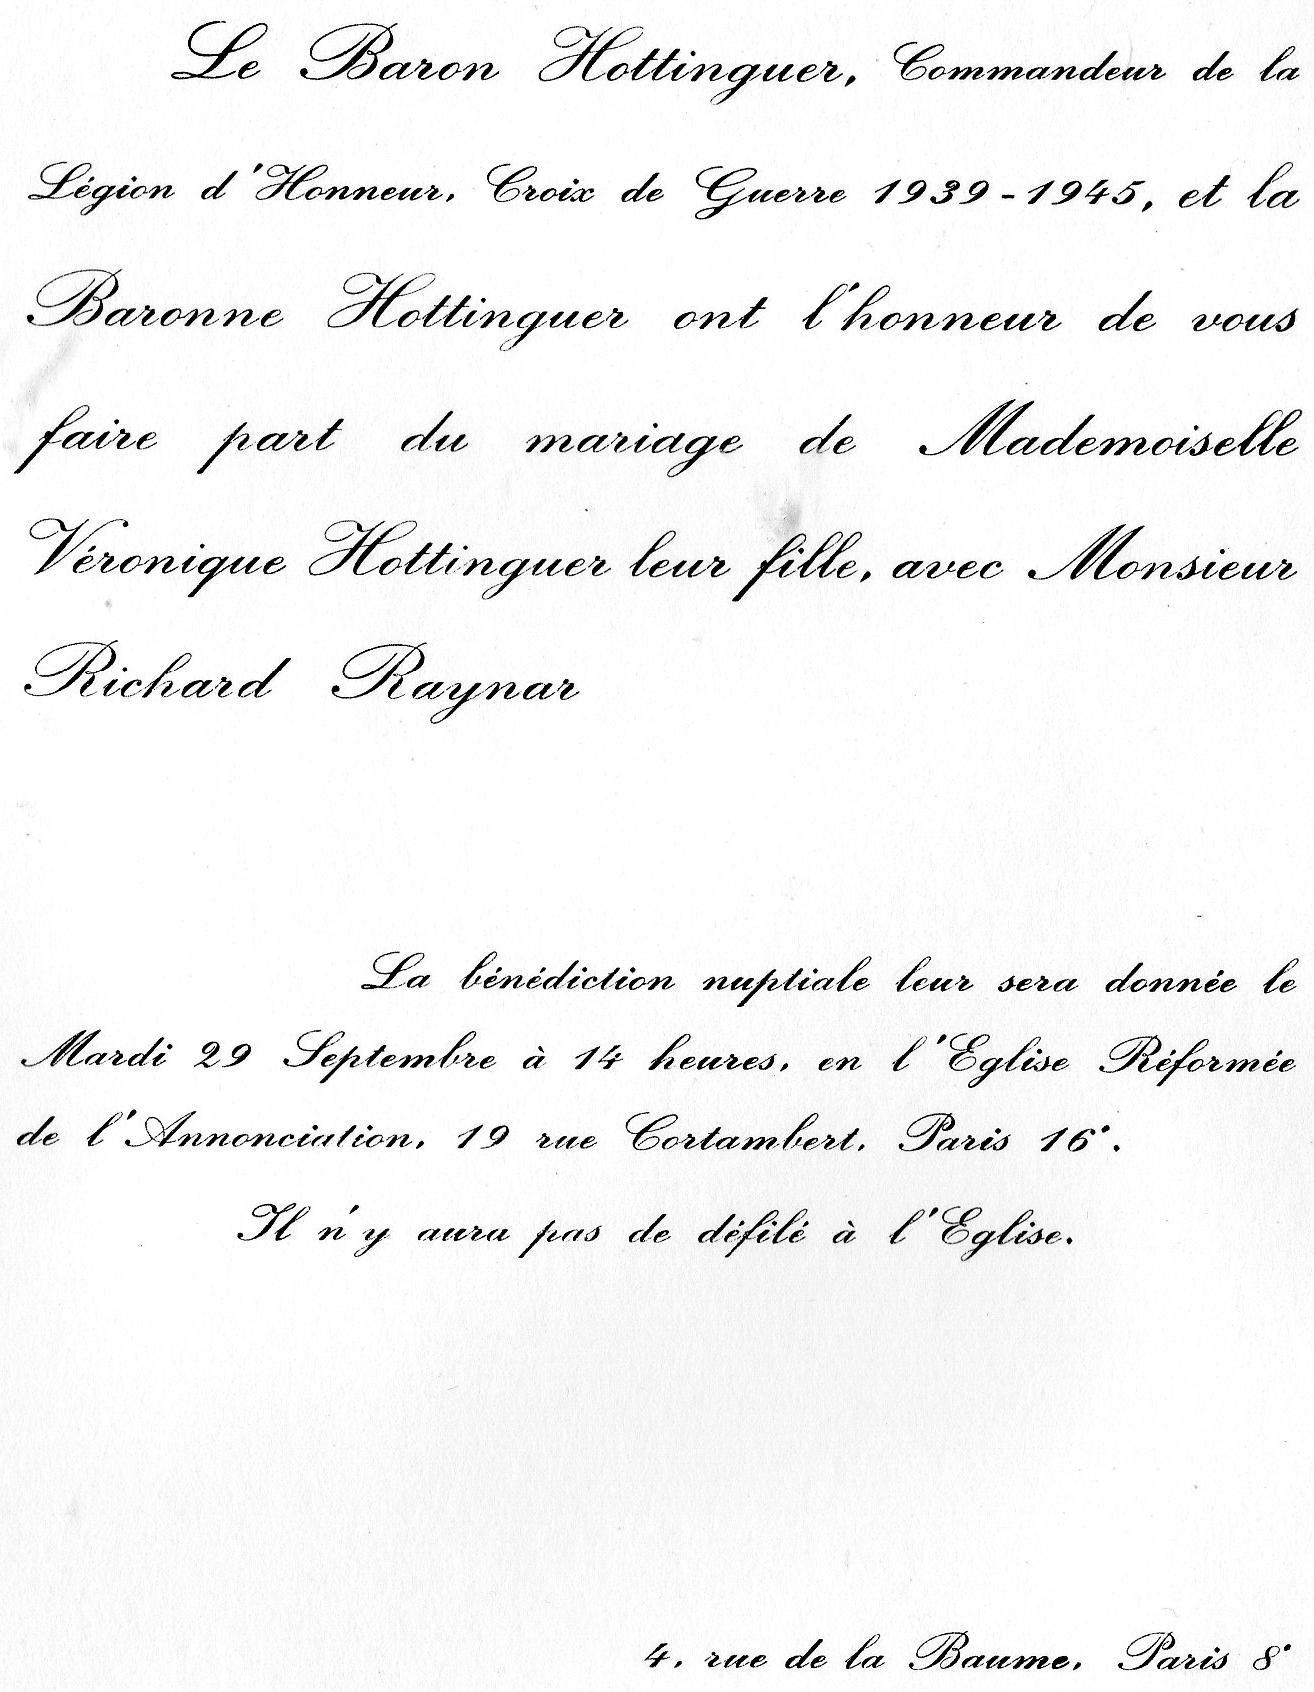 Le Baron Hottinguer, Commandeur de la
Légion d'Honneur, Croix de Guerre 1939-1945, et la
Baronne Hottinguer ont l'honneur de vous
faire part du mariage de Mademoiselle
Véronique Hottinguer leur fille, avec Monsieur
Richard Raynar
La bénédiction nuptiale leur sera donnée le
Mardi 29 Septembre à 14 heures, en l'Eglise Réformée
de l'Annonciation, 19 rue Cortambert, Paris 16e.
Il n'y aura pas de défilé à l'Eglise.
4, rue de la Baume, Paris 8e